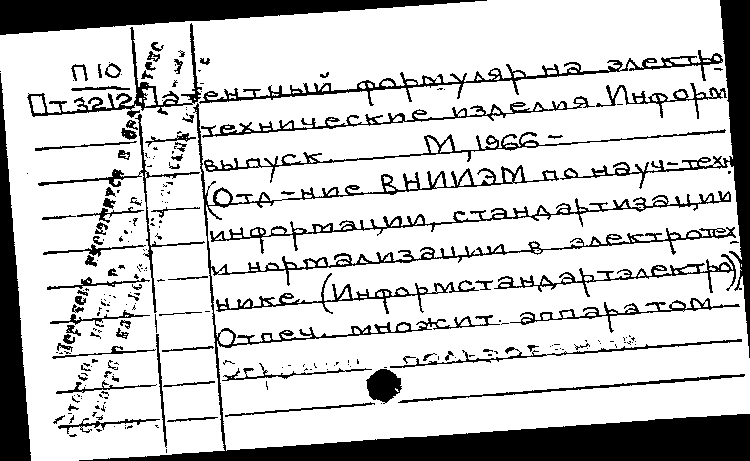 П 10
Пт3212 Патентный формуляр на электро
технические изделия. Информ
выпуск. М, 1966 –
(Отд-ние ВНИИЭМ по науч-техн
информации, стандартизации
и нормализации в электротех
нике. (Информстандартэлектро))
Отпеч. множит. аппаратом.
пользования.
Перечень имеющихся в библиотеке